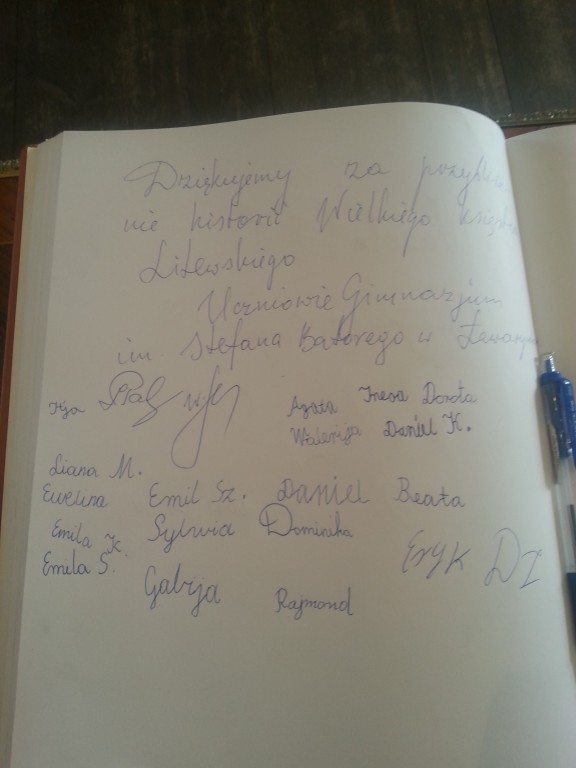 Dziękujemy za przybliże-
nie historii Wielkiego Księstwa
Litewskiego
Uczniowie Gimnazjum
im. Stefana Batorego w Ławaryszkach
Ilja
Agata Inesa Dorota
Walerija Daniel K.
Liana M.
Ewelina Emil Sz. Daniel Beata
Emila K. Sylwia Dominika
Emila S. Eryk DZ
Gabija Rajmond